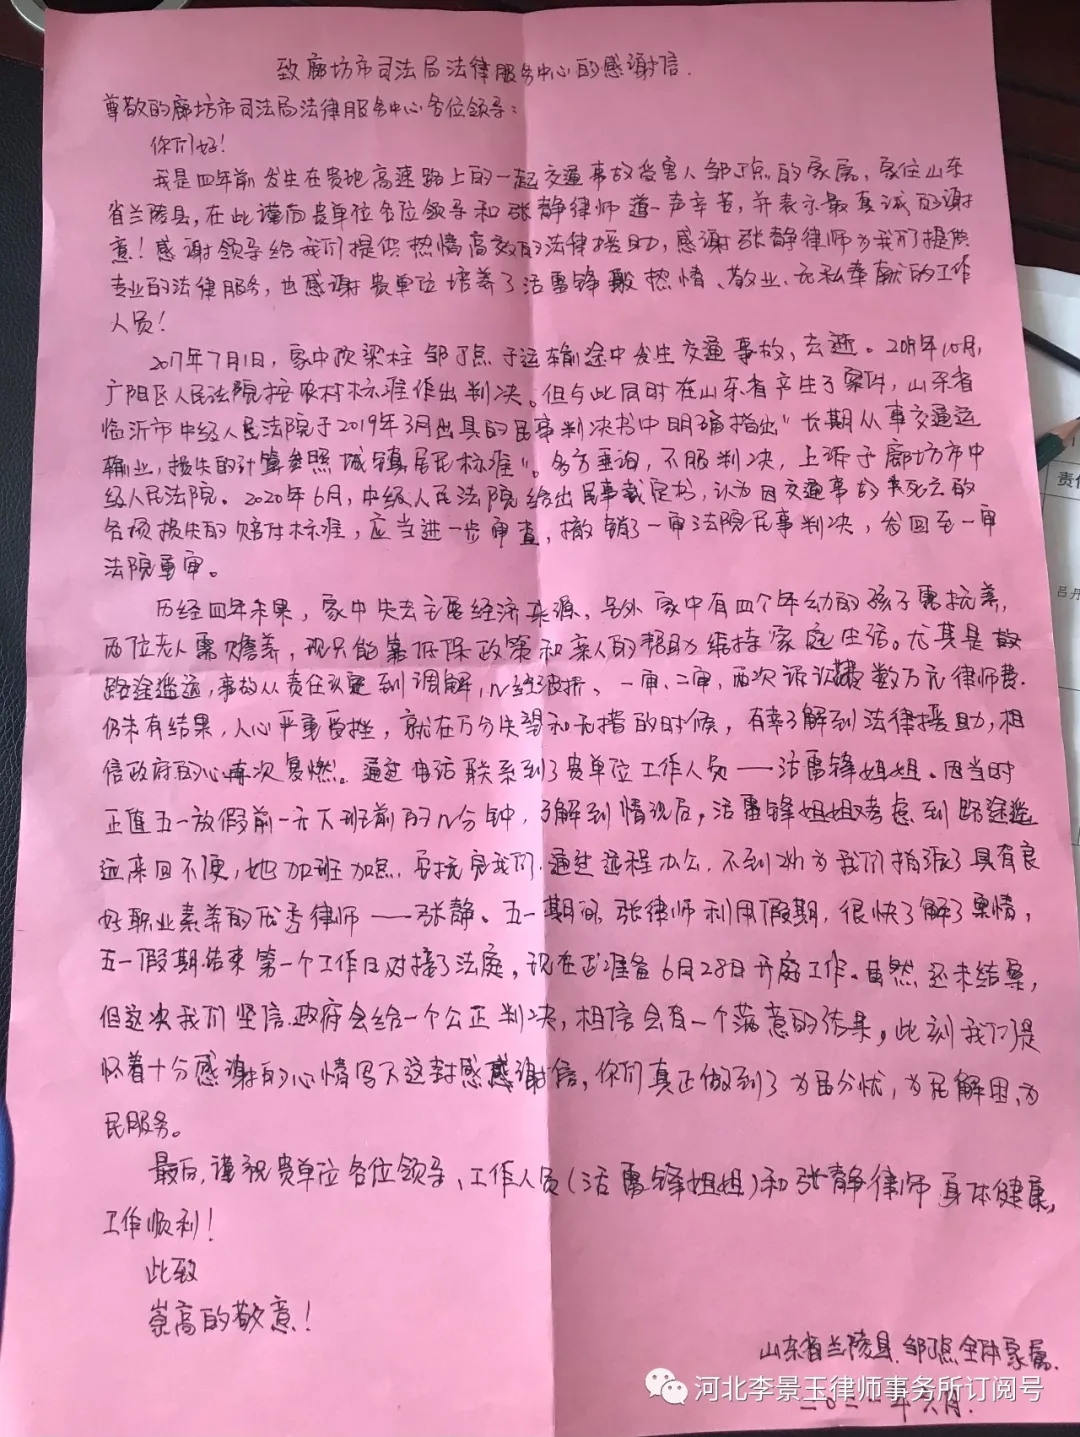 致廊坊市司法局法律服务中心的感谢信.
尊敬的廊坊市司法局法律服务中心各位领导:
你们好!
我是四年前发生在贵地高速路上的一起交通事故受害人邹丁点的家属,家住山东
省兰陵县,在此谨向贵单位各位领导和张静律师道一声辛苦,并表示最真诚的谢
意!感谢领导给我们提供热情高效的法律援助,感谢张静律师为我们提供
专业的法律服务,也感谢贵单位培养了活雷锋般热情、敬业、无私奉献的工作
人员!
2017年7月1日,家中顶梁柱邹丁点于运输途中发生交通事故,去逝。2019年10月,
广阳区人民法院按农村标准作出判决。但与此同时在山东省产生了案件,山东省
临沂市中级人民法院于2019年3月出具的民事判决书中明确指出"长期从事交通运
输业,损失的计算参照城镇居民标准"。多方查询,不服判决,上诉于廊坊市中
级人民法院。2020年6月,中级人民法院给出民事裁定书,认为因交通事故死亡的
各项损失的赔付标准,应当进一步审查,撤销了一审法院民事判决,发回至一审
法院重审。
历经四年未果,家中失去主要经济来源、另外家中有四个年幼的孩子需抚养,
两位老人需赡养,现只能靠低保政策和亲人的帮助维持家庭生活。尤其是
路途遥远,事故从责任认定到调解,几经波折、一审、二审,两次诉讼花费数万元律师费.
仍未有结果,人心严重受挫,就在万分失望和无措的时候,有幸了解到法律援助,相
信政府的心再次复燃。通过电话联系到了贵单位工作人员——活雷锋姐姐。因当时
正值五一放假前一天下班前的几分钟,了解到情况后,活雷锋姐姐考虑到路途遥
远来回不便,她加班加点,我们.通过远程办公,不到2h为我们指派了具有良
好职业素养的优秀律师——张静。五一期间,张律师利用假期,很快了解了案情,
五一假期结束第一个工作日对接了法庭,现在正准备6月28日开庭工作。虽然还未结案,
但这次我们坚信政府会给一个公正判决,相信会有一个满意的结果。此刻我们是
怀着十分感谢的心情写下这封感谢信,你们真正做到了为国分忧,为民解困、为
民服务。
最后,谨祝贵单位各位领导、工作人员(活雷锋姐姐)和张静律师身体健康,
工作顺利!
此致
崇高的敬意!
山东省兰陵县.邹丁点全体家属.
二〇二一年六月.
河北李景玉律师事务所订阅号
责任
吕丹